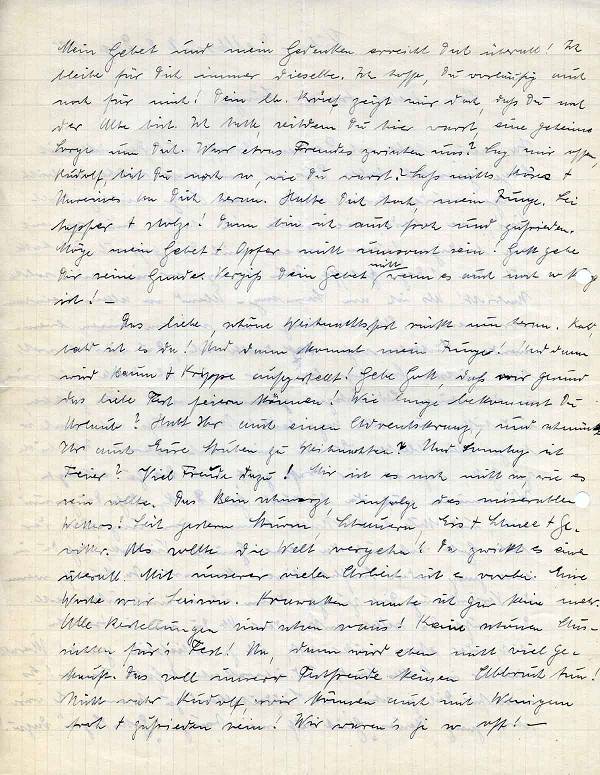 Mein Gebet und mein Gedenken erreicht Dich überall! Ich
bleibe für Dich immer dieselbe. Ich hoffe, Du vorläufig auch
noch für mich! Dein lb. Brief zeigt mir doch, daß Du noch
der Alte bist. Ich hatte, seitdem Du hier warst, eine geheime
Sorge um Dich. War etwas Fremdes zwischen uns? Sag mir offen,
Rudolf, bist Du noch so, wie Du warst? Laß nichts Böses +
Unreines an Dich heran. Halte Dich hoch mein Junge. Sei
tapfer + stolz! Dann bin ich auch froh und zufrieden.
Möge mein Gebet + Opfer nicht umsonst sein! Gott gebe
Dir seine Gnade. Vergiß Dein Gebet nicht wenn es auch noch so
ist! —
Das liebe, schöne Weihnachtsfest rückt nun heran. Bald,
bald ist es da! Und dann kommt mein Junge! Und dann
wird Baum + Krippe aufgestellt! Gebe Gott, daß wir gesund
das liebe Fest feiern können! Wie lange bekommst Du
Urlaub? Habt Ihr auch einen Adventskranz, und schmückt
Ihr auch Eure Stuben zu Weihnachten? Und Sonntag ist
Feier? Viel Freude dazu! Mir ist es noch nicht so, wie es
sein sollte. Das Bein schmerzt, infolge des miserablen
Wetters! Seit gestern Sturm, Schauern, Eis + Schnee + Ge-
witter. Als sollte die Welt vergehen! Da zwickt es eine
überall. Mit unserer vielen Arbeit ist es vorbei. Eine
Woche war Saison. Krawatten mache ich gar keine mehr.
Alle Bestellungen sind schon raus! Keine schönen Aus-
sichten für's Fest! Na, dann wird eben nicht viel ge-
kauft. Das soll unserer Festfreude keinen Abbruch tun!
Nicht wahr Rudolf, wir können auch mit Wenigem
froh + zufrieden sein! Wir waren's ja so oft! —